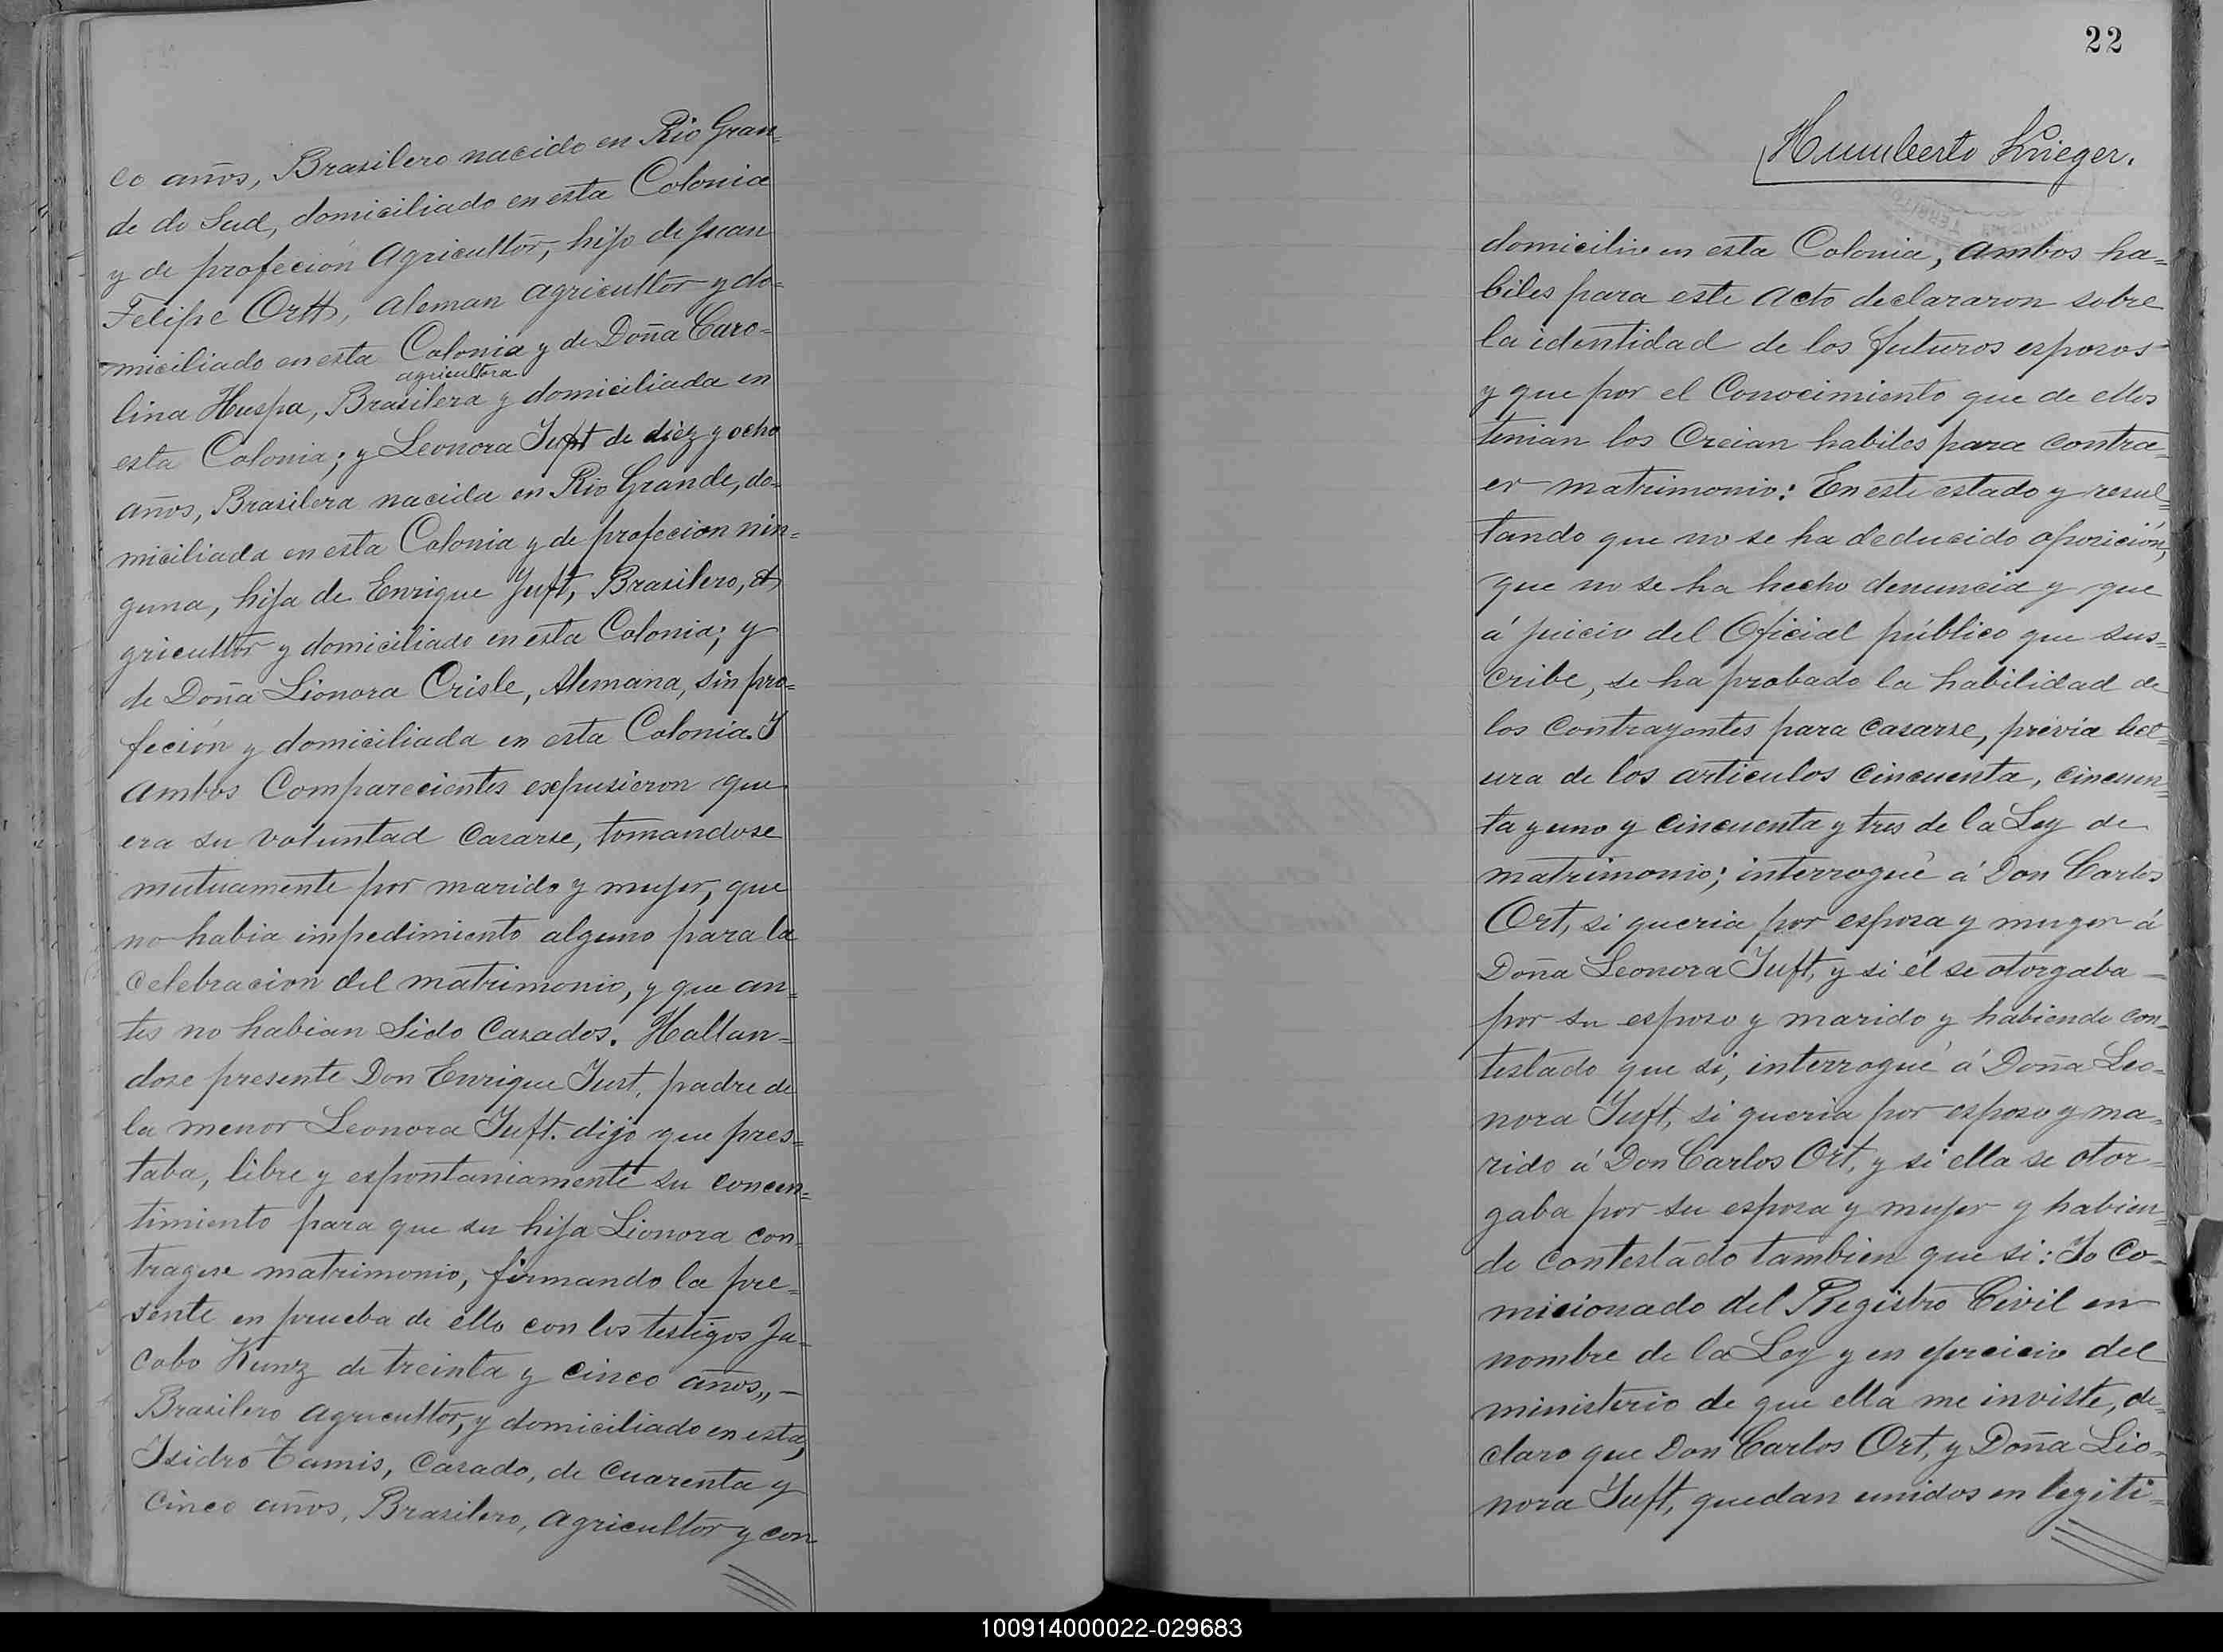 co años, Brasilero nacido en Rio Gran=
de do Sud, domiciliado en esta Colonia
y de profeción Agricultor, hijo de Juan
Felipe Ortt, aleman agricultor y do=
miciliado en esta Colonia y de Doña Caro=
agricultora
lina Huspa, Brasilera y domiciliada en
esta Colonia; y Leonora Juft de diez y ocho
años, Brasilera nacida en Rio Grande, do=
miciliada en esta Colonia y de profecion nin=
guna, hija de Enrique Juft, Brasilero, A
gricultor y domiciliado en esta Colonia; y
de Doña Lionora Crisle, Alemana, sin pro=
feción y domiciliada en esta Colonia. Y
ambos Comparecientes expusieron que
era su voluntad Casarse, tomandose
mutuamente por marido y mujer, que
no habia impedimiento alguno para la
Celebracion del matrimonio, y que an=
tes no habian Sido Casados. Hallan=
dose presente Don Enrique Just, padre de
la menor Leonora Juft. dijo que pres=
taba, libre y espontaniamente su concen=
timiento para que su hija Lionora con=
tragese matrimonio, firmando la pre=
sente en prueba de ello con los testigos Ja=
cobo Kunz de treinta y cinco años,, —
Brasilero agricultor, y domiciliado en esta,
Isidro Tamis, Casado, de Cuarenta y
Cinco años, Brasilero, agricultor y con
22
Humberto Krieger.
domicilio en esta Colonia, ambos ha=
biles para este Acto declararon sobre
la identidad de los futuros esposos
y que por el Conocimiento que de ellos
tenian los Creian habiles para contra=
er matrimonio: En este estado y resul=
tando que no se ha deducido oposición,
que no se ha hecho denuncia y que
á juicio del Oficial público que sus=
cribe, se ha probado la habilidad de
los Contrayentes para Casarse, prévia lec=
ura de los articulos Cincuenta, Cincuen=
ta y uno y Cincuenta y tres de la Ley de
matrimonio; interrogué á Don Carlos
Ort, si queria por esposa y muger á
Doña Leonora Juft, y si él se otorgaba —
por su esposo y marido y habiendo con=
testado que si, interrogué á Doña Leo=
nora Juft, si queria por esposo y ma=
rido á Don Carlos Ort, y si ella se otor=
gaba por su esposa y mujer y habien=
do Contestado tambien que si: Yo Co=
micionado del Registro Civil en
nombre de la Ley y en ejercicio del
ministerio de que ella me inviste, de=
claro que Don Carlos Ort, y Doña Lio=
nora Juft, quedan unidos en legiti=
100914000022-029683